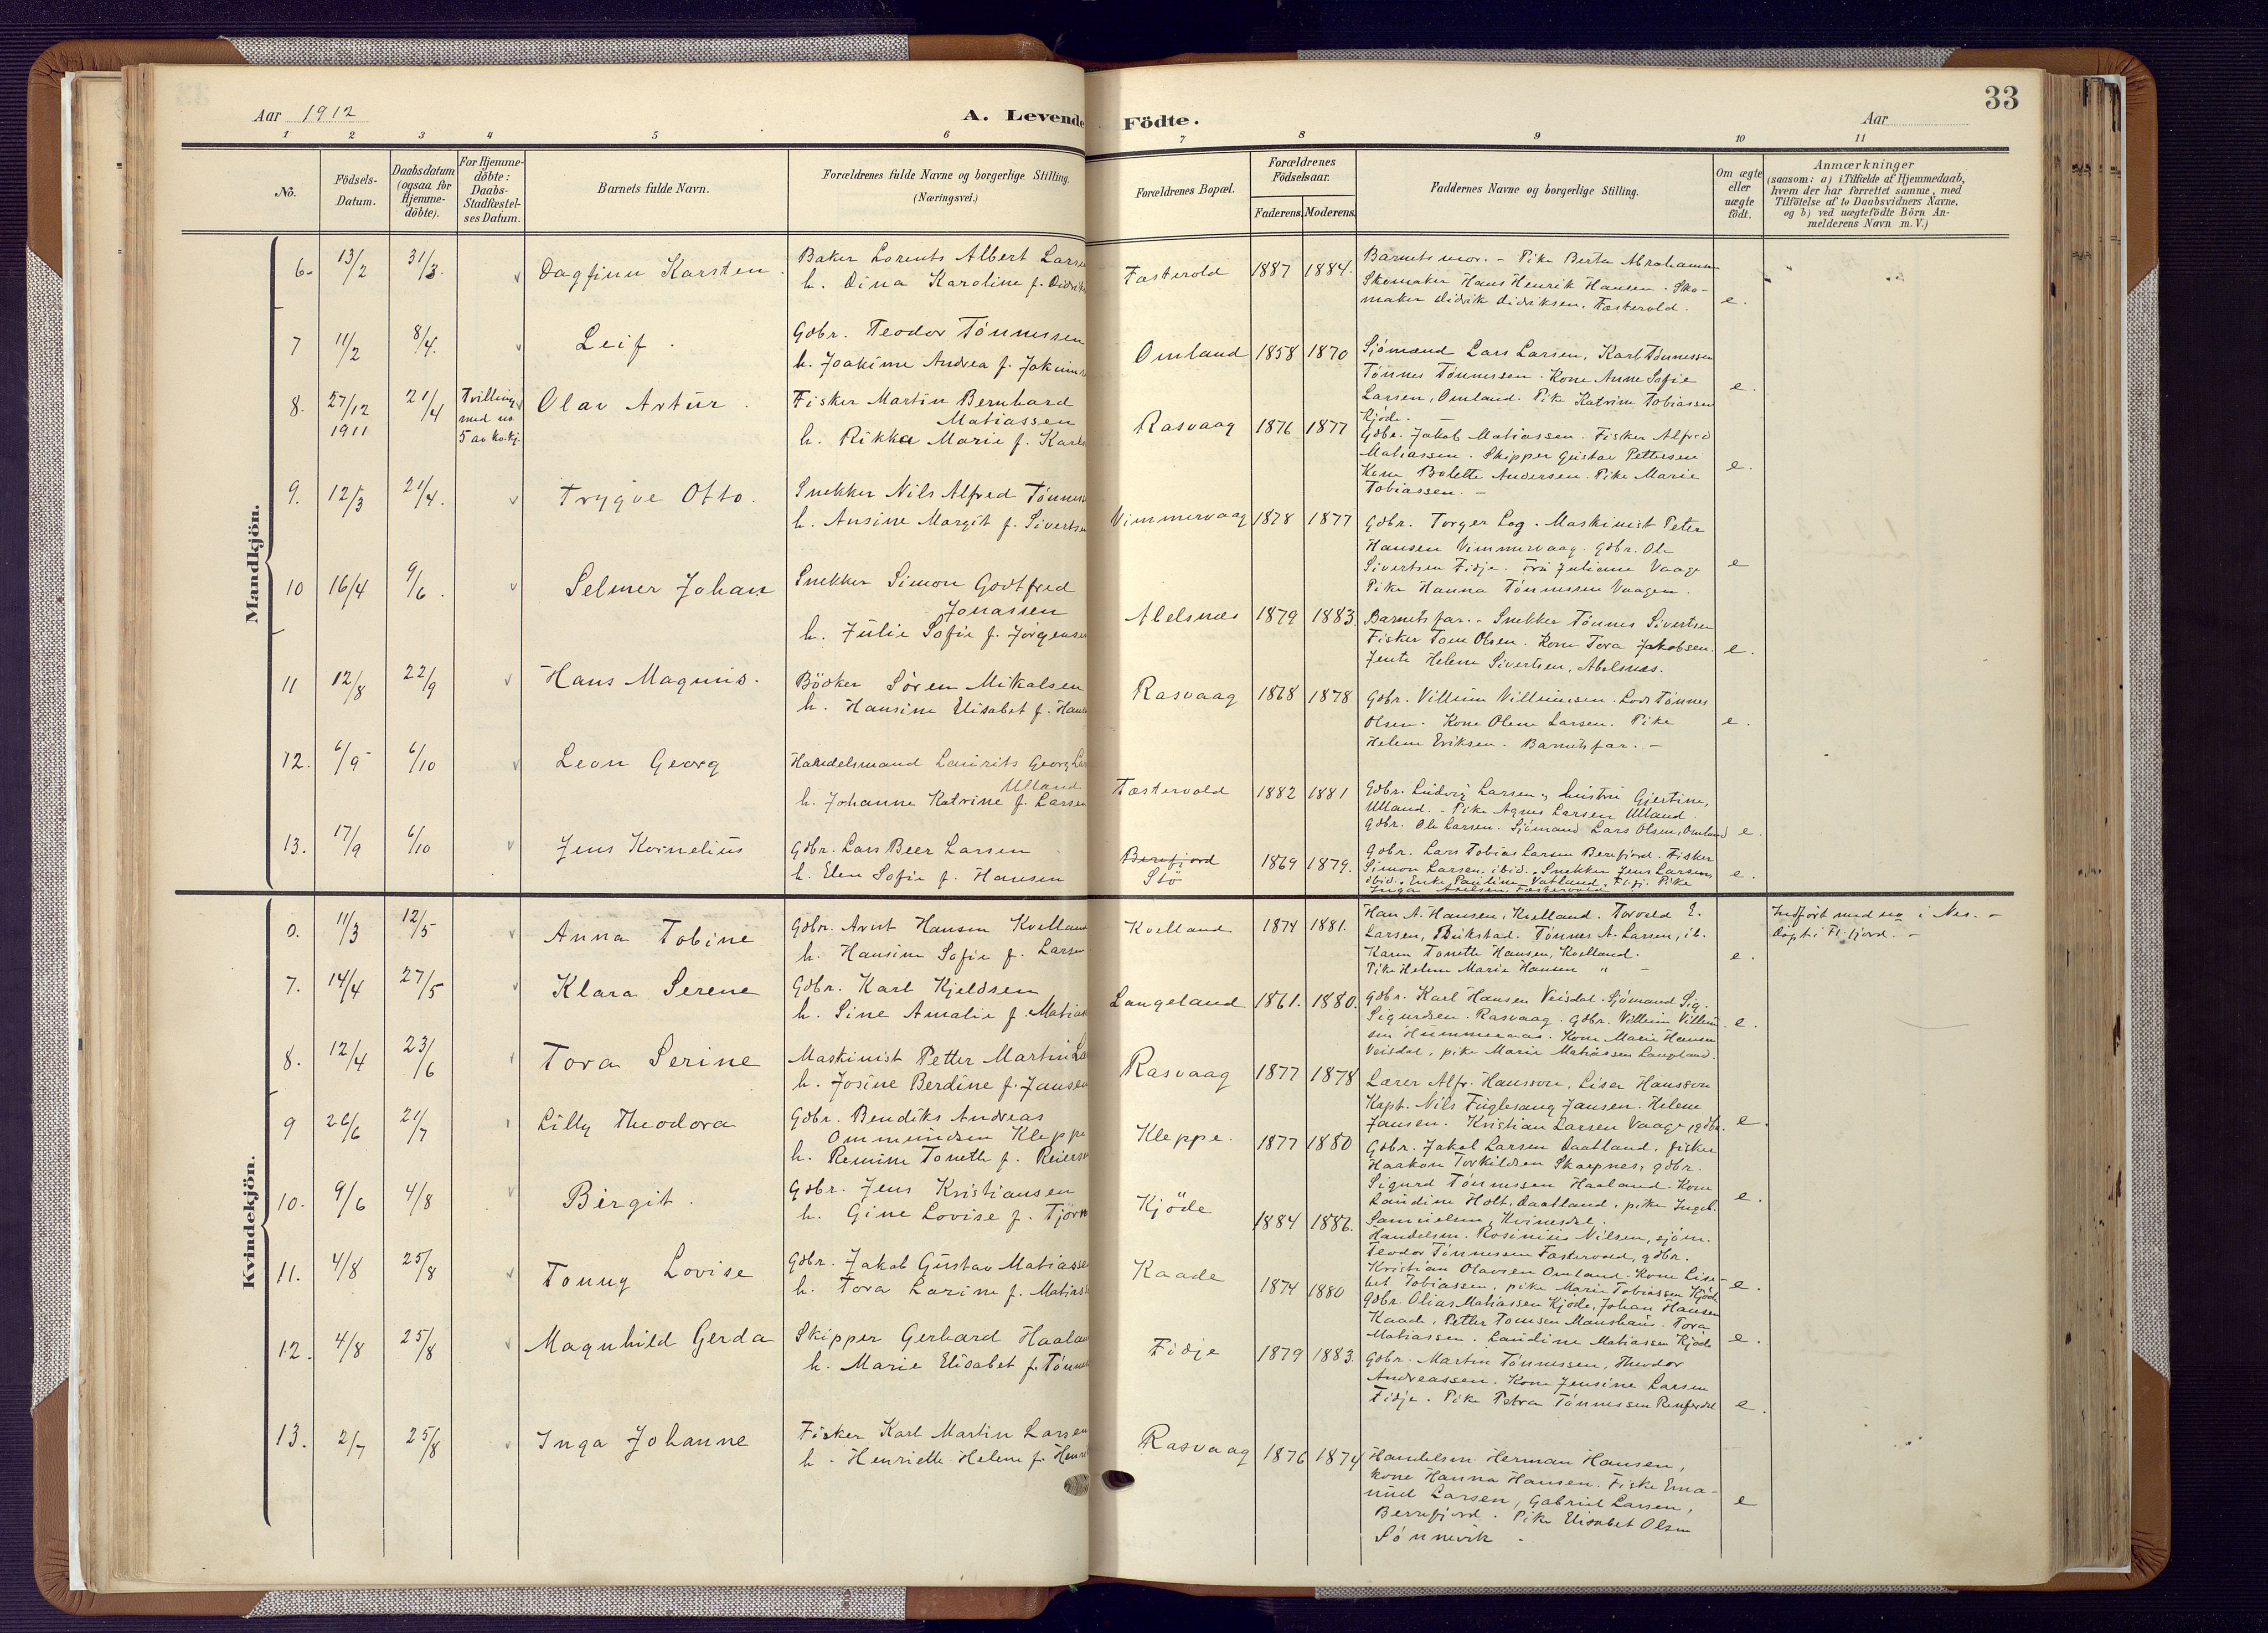 33
Aar 1912
A. Levende Födte.
Aar
1 2 3 4 5 6 7 8 9 10 11
No.
Födsels-
Datum.
Daabsdatum
(ogsaa for
Hjemme-
döbte).
For Hjemme-
döbte:
Daabs-
Stadfæstel-
ses Datum.
Barnets fulde Navn.
Forældrenes fulde Navne og borgerlige Stilling.
(Næringsvei.)
Forældrenes Bopæl.
Forældrenes
Födselsaar.
Faderens. Moderens.
Faddernes Navne og borgerlige Stilling.
Om ægte
eller
uægte
födt.
Anmærkninger
(saasom: a) i Tilfælde af Hjemmedaab,
hvem der har forrettet samme, med
Tilföielse af to Daabsvidners Navne,
og b) ved uægtefödte Börn An-
melderens Navn m. V.)
Mandkjön.
6. 13/2 31/3. Dagfinn Karsten.
Baker Lorents Albert Larse
h. Dina Karoline f. Didrik
Fæsterold 1887 1884.
Barnets mor. - Pike Berta Abrahamsen
Skomaker Hans Henrik Hansen. Sko-
maker Didrik Didriksen, Fæsterold. e.
7 11/2 8/4. Leif.
Gdbr. Teodor Tönnessen
h. Joakime Andrea f. Jokims
Omland 1858 1870
Sjömænd Lars Larsen, Karl Tönnessen
Tönnes Tönnessen. Kone Anne Sofie
Larsen, Omland. Pike Katrine Tobiassen
Kjöde. - e.
8. 27/12 1911 21/4
Tvilling
med no
5 av kv.kj.
Olav Artur.
Fisker Martin Bernhard
Matiassen
h. Rikka Marie f. Karl
Rasvaag 1876 1877
Gdbr. Jakob Matiassen. Fisker Alfred
Matiassen. Skipper Gustav Pettersen
Kone Bolette Andersen. Pike Marie
Tobiassen. - e.
9. 12/3 21/4. Trygve Otto.
Snekker Nils Alfred Tönnes
h. Ansine Margit f. Sivertse
Vimmervaag 1878 1877
Gdbr. Torger Log. Maskinist Peter
Hansen Vimmervaag. Gdbr. Ole
Sivertsen Fidje. Fru Juliane Vaage
Pike Hanna Tönnessen Vaagen. e
10 16/4 9/6. Selmer Johan
Snekker Simon Godtfred
Jonassen
h. Julie Sofie f. Jörgense
Abelsnes 1879 1883.
Barnets far. - Snekker Tönnes Sivertsen
Fisker Tom Olsen. Kone Tora Jakobsen.
Jente Helene Sivertsen, Abelsnes. e.
11 12/8 22/9 Hans Magnus.
Bödker Sören Mikalsen
h. Hansine Elisabet f. Hans
Rasvaag 1868 1878
Gdbr. Villum Villumsen. Lods Tönnes
Olsen. Kone Olene Larsen. Pike
Helene Eriksen. Barnets far. - e.
12. 6/9 6/10 Leon Georg
Handelsmand Laurits Georg Lar
Ulland
h. Johanne Katrine f. Larsen
Fæsterold 1882 1881
Gdbr. Ludvig Larsen, hustru Gjertine,
Ulland. - Pike Agnes Larsen Ulland.
Gdbr. Ole Larsen. Sjömand Lars Olsen, Omland e.
13. 17/9 6/10 Jens Kornelius
Gdbr. Lars Beer Larsen
h. Elen Sofie f. Hansen
Berefjord
Stö
1869 1879.
Gdbr. Lars Tobias Larsen Berefjord. Fisker
Simon Larsen, ibid. Snekker Jens Larsen
ibid. Enke Pauline Vatland, Fiji. Pike
Inga Axelsen, Fæsterold e.
Kvindekjön.
0. 11/3 12/5 Anna Tobine
Gdbr. Arnt Hansen Kvelland
h. Hansine Sofie f. Larse
Kvelland 1874 1881.
Han A. Hansen, Kvelland. Torvald E.
Larsen, Birkstad. Tönnes A. Larsen, ib.
Karen Tonette Hansen, Kvelland.
Pike Helene Marie Hansen " - e.
Indfört med no i Nes. -
Döpt i Fl. fjord. -
7. 14/4 27/5 Klara Serene
Gdbr. Karl Kjeldsen
h. Sine Amalie f. Matias
Langeland 1861. 1880.
Gdbr. Karl Hansen Veisdal. Sjömand Sig.
Sigurdsen. Rasvaag. Gdbr. Villum Villum-
sen Hummeraas. Kone Marie Hansen
Veisdal, pike Marie Matiassen Langeland. e.
8. 12/4 23/6 Tora Serine
Maskinist Petter Martin La
h. Josine Berdine f. Jansen
Rasvaag 1877 1878
Lærer Alfr. Hansson, Lisa Hansson
Kapt. Nils Fuglesang Jansen. Helene
Jansen. Kristian Larsen Vaage, gdbr. e.
9 26/6 21/7 Lilly Theodora
Gdbr. Bendiks Andreas
Ommundsen Kleppe
h. Remine Tonette f. Reiers
Kleppe. 1877 1880
Gdbr. Jakob Larsen Daatland, fisker
Haakon Torkildsen Skarpnes, gdbr.
Sigurd Tönnessen Haaland. Kone
Laudine Holt, Daatland, pike Ingeb.
Samuelsen, Kvinesdal. e.
10. 9/6 4/8 Birgit.
Gdbr. Jens Kristiansen
h. Gine Lovise f. Tjörn
Kjöde 1884 1886.
Handelsm. Rosinius Nilsen, sjöm.
Teodor Tönnessen Fæsterold, gdbr.
Kristian Olavsen Omland. Kone Lisa-
bet Tobiassen, pike Marie Tobiassen Kjöde e.
11. 4/8 25/8 Tonny Lovise
Gdbr. Jakob Gustav Matiasse
h. Tora Larine f. Matias
Kaade 1874 1880
Gdbr. Olias Matiassen Kjöde, Johan Hansen
Kaade, Petter Tomsen Maushaus. Tora
Matiassen. Laudine Matiassen Kjöde e.
12. 4/8 25/8 Magnhild Gerda
Skipper Gerhard Haala
h. Marie Elisabet f. Tönne
Fidje 1879 1883.
Gdbr. Martin Tönnessen, Theodor
Andreassen. Kone Jensine Larsen
Fidje. Pike Petra Tönnessen e.
13. 2/7 25/8 Inga Johanne
Fisker Karl Martin Larsen
h. Henriette Helene f. Henri
Rasvaag 1876 1874
Handelsm. Herman Hansen,
kone Hanna Hansen. Fiske Ema-
nuel Larsen, Gabriel Larsen,
Berrefjord. Pike Elisabet Olsen
Sönnevik - e